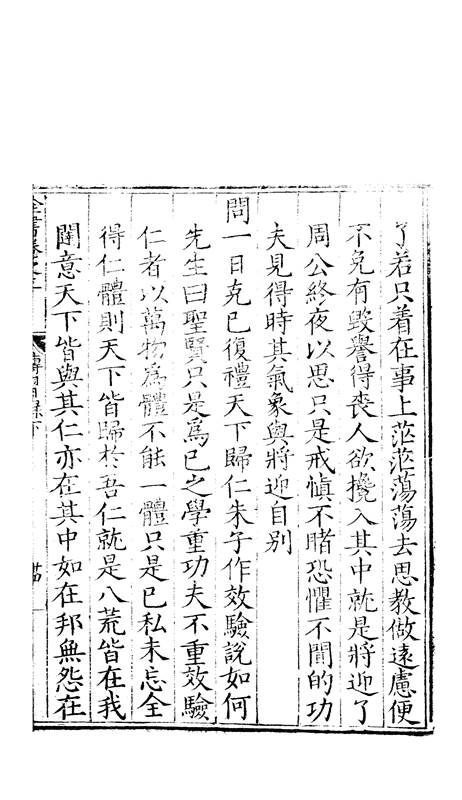 了若只着在事上茫茫蕩蕩去思教做遠慮便
不免有毀譽得喪人欲攙入其中就是將迎了
周公終夜以思只是戒慎不睹恐懼不聞的功
夫見得時其氣象與將迎自別
問一日克己復禮天下歸仁朱子作效驗說如何
先生曰聖賢只是爲己之學重功夫不重效驗
仁者以萬物爲體不能一體只是己私未忘全
得仁體則天下皆歸於吾仁就是八荒皆在我
闥意天下皆與其仁亦在其中如在邦無怨在
全書卷之三
傳習錄下